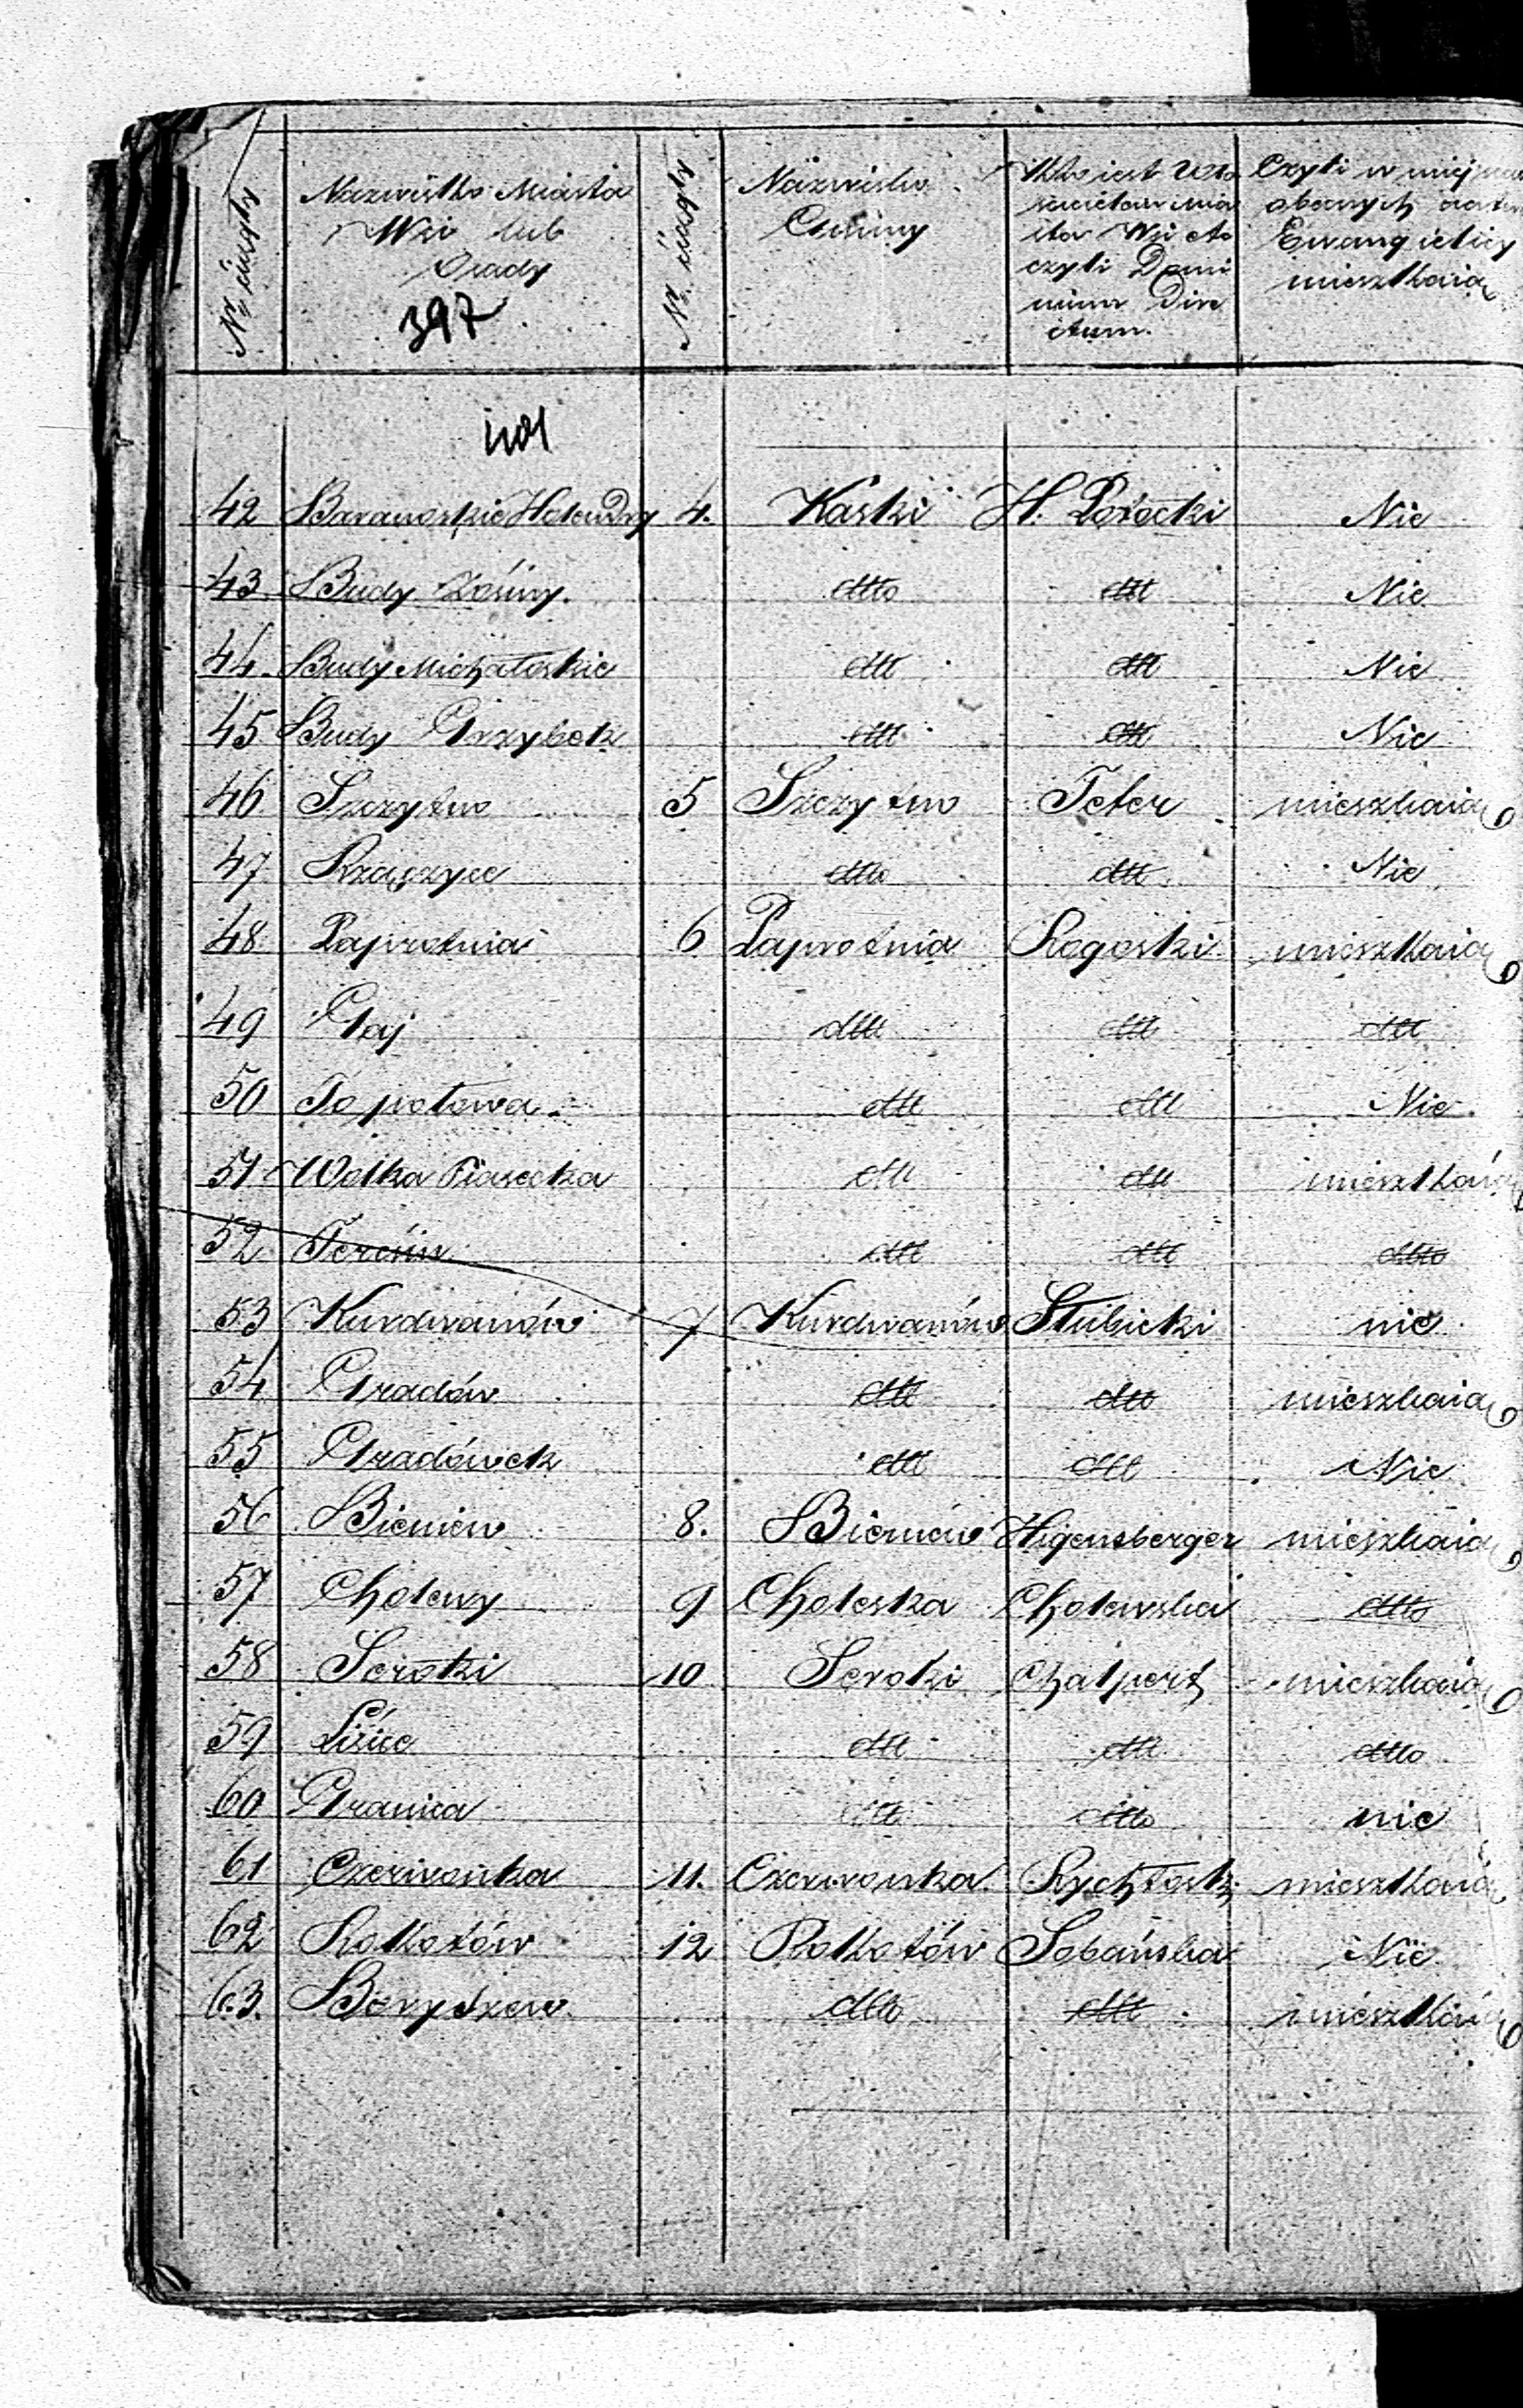 Nr ciągły | Nazwisko Miasta Wsi lub Osady | Nr ciągły | Nazwisko Gminy | Kto iest właścicielem miasta Wsi etc czyli Dominium Directum. | Czyli w miejscach obecnych Ewangielicy mieszkaią
397
1101
42 Baranoskie Holendry 4. Kaski H. Łosocki Nie
43 Budy Zośiny. ditto ditt Nie
44. Budy Michałoskie ditt ditt Nie
45 Budy Grzybek ditt ditt Nie
46 Szczytno 5 Szczytno Teter mieszkaią
47 ditto ditt Nie
48 Paprotnia 6 Paprotnia Rogoski mieszkaią
49 Gaj ditt ditt ditt
50 Topołowa ditt ditt Nie
51 Wolka Piasecka ditt ditt mieszkaią
52 Teresin ditt ditt ditto
53 Kurdwanów 7 Kurdwanów Słubicki nie
54 Gradów ditt ditto mieszkaią
55 Gradówek ditt ditt Nie
56 Bieniew 8. Bieniew Higensberger mieszkaią
57 Cholewy 9 Choleska Cholewska ditto
58 Seroki 10 Seroki Chalpert mieszkaią
59 Lisice ditt ditt ditto
60 Granica ditt ditto nie
61 Czerwonka 11. Czerwonka Rychłoski mieszkaią
62 Rokotów 12 Rokotów Sobańska Nie
63. Boryszew ditto ditt mieszkaią